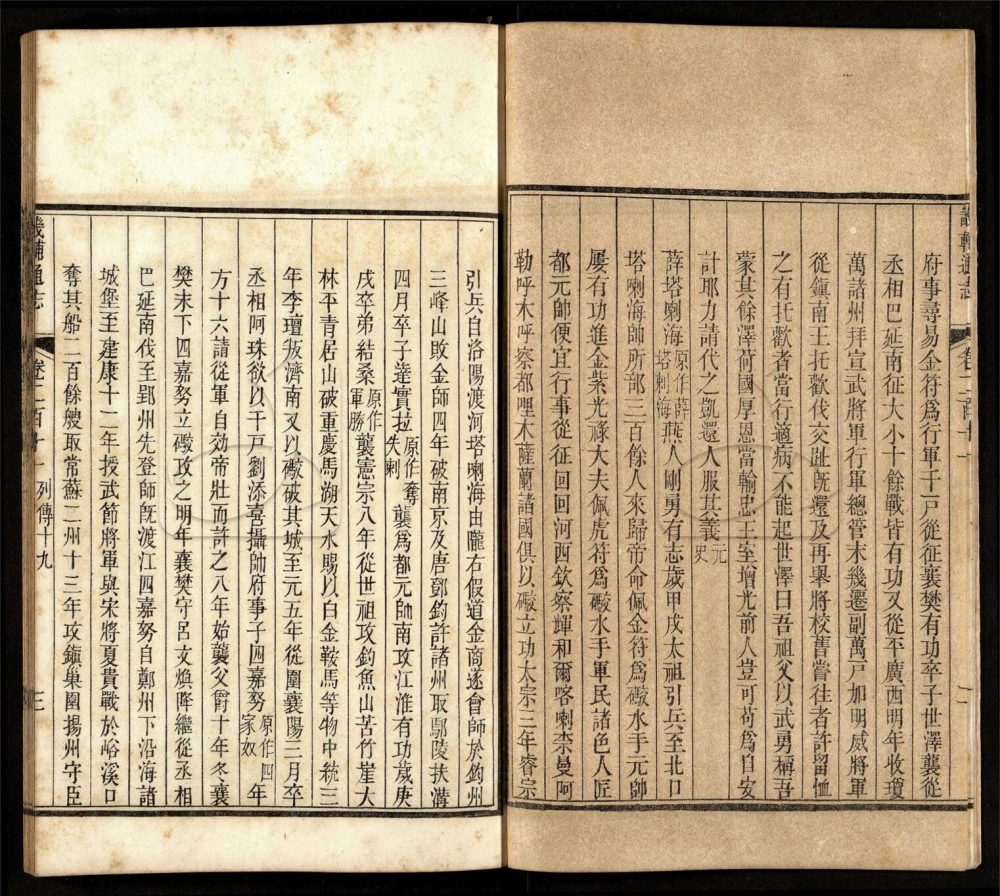 畿輔通志
卷二百十一
二
府事尋易金符爲行軍千戸從征襄樊有功卒子世澤襲從
丞相巴延南征大小十餘戰皆有功又從平廣西明年收瓊
萬諸州拜宣武將軍行軍總管未幾遷副萬戸加明威將軍
從鎭南王托歡伐交趾旣還及再舉將校舊嘗往者許留恤
之有托歡者當行適病不能起世澤曰吾祖父以武勇稱吾
蒙其餘澤荷國厚恩當輸忠王室增光前人豈可苟爲自安
計耶力請代之凱還人服其義元史
薛塔喇海原作薛塔剌海燕人剛勇有志歲甲戌太祖引兵至北口
塔喇海帥所部三百餘人來歸帝命佩金符爲礮水手元帥
屢有功進金紫光祿大夫佩虎符爲礮水手軍民諸色人匠
都元帥便宜行事從征回回河西欽察輝和爾喀喇柰曼阿
勒呼木呼察都哩木薩蘭諸國俱以礮立功太宗三年睿宗
引兵自洛陽渡河塔喇海由隴右假道金商遂會師於鈞州
三峰山敗金師四年破南京及唐鄧鈞許諸州取鄢陵扶溝
四月卒子達實拉原作奪失剌襲爲都元帥南攻江淮有功歲庚
戌卒弟結桑原作軍勝襲憲宗八年從世祖攻釣魚山苦竹崖大
林平青居山破重慶馬湖天水賜以白金鞍馬等物中統三
年李璮叛濟南又以礮破其城至元五年從圍襄陽三月卒
丞相阿珠欲以千戸劉添喜攝帥府事子四嘉努原作四家奴年
方十六請從軍自效帝壯而許之八年始襲父爵十年冬襄
樊未下四嘉努立礮攻之明年襄樊守呂文煥降繼從丞相
巴延南伐至郢州先登師旣渡江四嘉努自鄭州下沿海諸
城堡至建康十二年授武節將軍與宋將夏貴戰於峪溪口
奪其船二百餘艘取常蘇二州十三年攻鎭巢圍揚州守臣
畿輔通志
卷二百十一 列傳十九
三